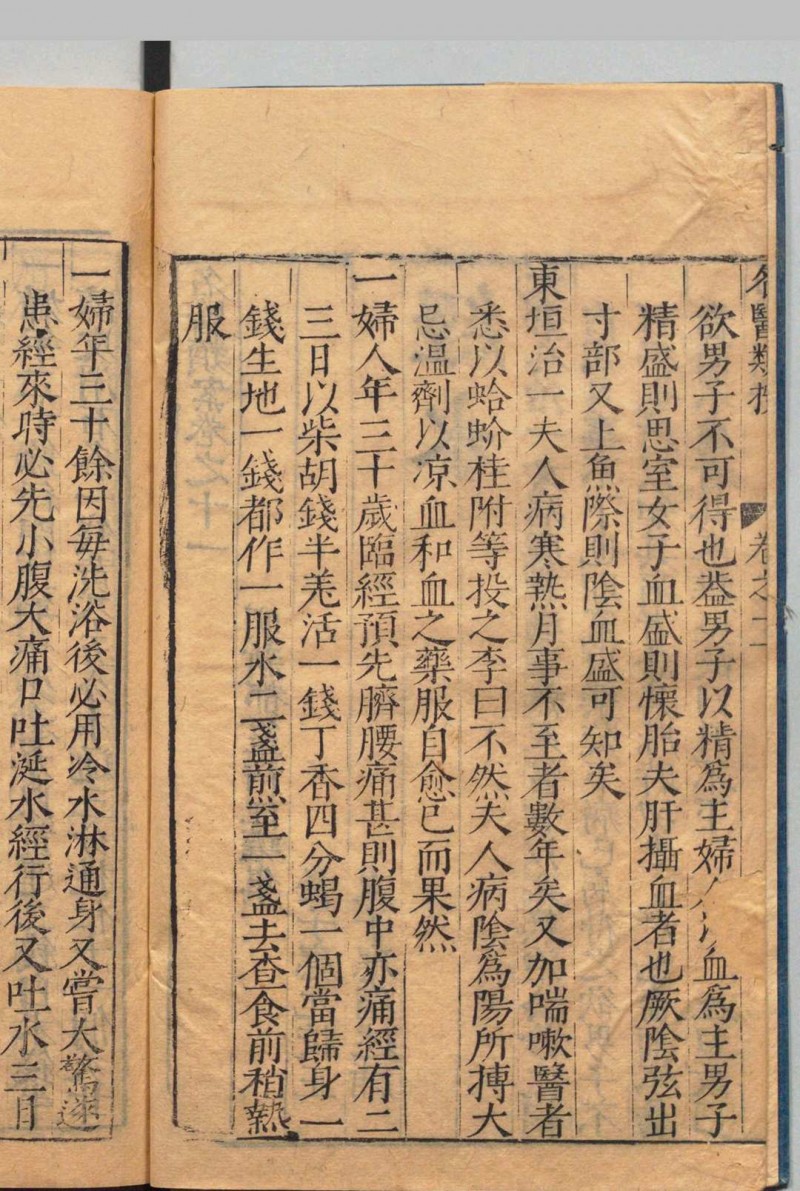 名醫類按 卷之十一
欲男子不可得也葢男子以精爲主婦人以血爲主男子
精盛則思室女子血盛則懷胎夫肝攝血者也厥陰弦出
寸部又上魚際則陰血盛可知矣
東垣治一夫人病寒熱月事不至者數年矣又加喘嗽醫者
悉以蛤蚧桂附等投之李曰不然夫人病陰爲陽所搏大
忌温劑以凉血和血之藥服自愈已而果然
一婦人年三十歲臨經預先臍腰痛甚則腹中亦痛經有二
三日以柴胡錢半羌活一錢丁香四分蝎一個當歸身一
錢生地一錢都作一服水二盞煎至一盞去查食前稍熱
服
一婦年三十餘因每洗浴後必用冷水淋通身又嘗大驚遂
患經來時必先小腹大痛口吐涎水經行後又吐水三日